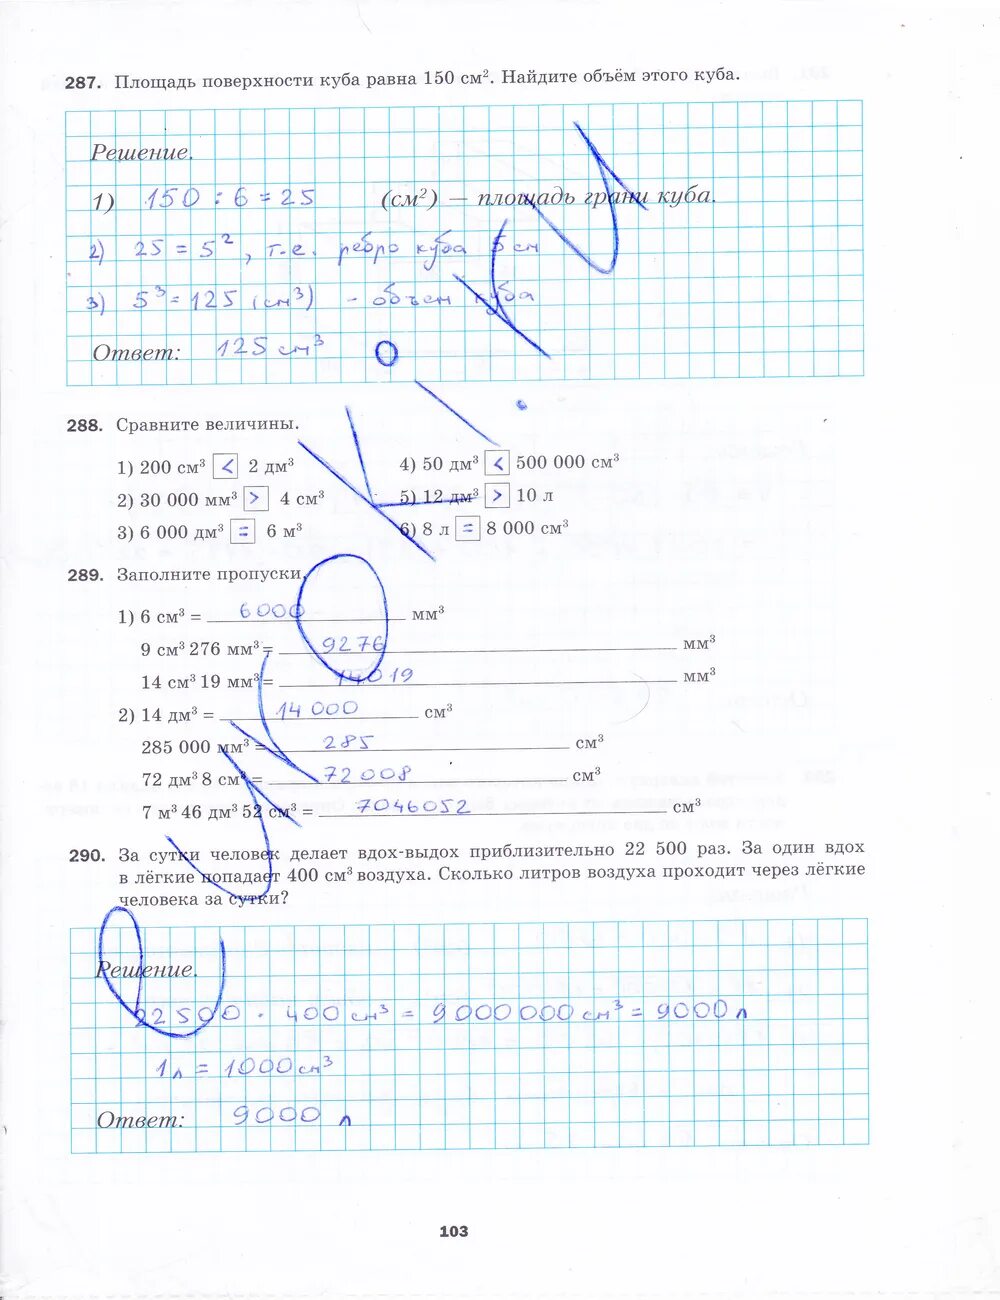 287. Площадь поверхности куба равна 150 см². Найдите объём этого куба.
Решение.
1) 150 : 6 = 25 (см²) — площадь грани куба.
2) 25 = 5², т.е. ребро куба 5 см
3) 5³ = 125 (см³) - объем куба
Ответ: 125 см³
288. Сравните величины.
1) 200 см³ < 2 дм³ 4) 50 дм³ < 500 000 см³
2) 30 000 мм³ > 4 см³ 5) 12 дм³ > 10 л
3) 6 000 дм³ = 6 м³ 6) 8 л = 8 000 см³
289. Заполните пропуски.
1) 6 см³ = 6000 мм³
9 см³ 276 мм³ = 9276 мм³
14 см³ 19 мм³ = 14019 мм³
2) 14 дм³ = 14 000 см³
285 000 мм³ = 285 см³
72 дм³ 8 см³ = 72 008 см³
7 м³ 46 дм³ 52 см³ = 7046052 см³
290. За сутки человек делает вдох-выдох приблизительно 22 500 раз. За один вдох
в лёгкие попадает 400 см³ воздуха. Сколько литров воздуха проходит через лёгкие
человека за сутки?
Решение.
22 500 · 400 см³ = 9 000 000 см³ = 9000 л
1 л = 1000 см³
Ответ: 9000 л
103